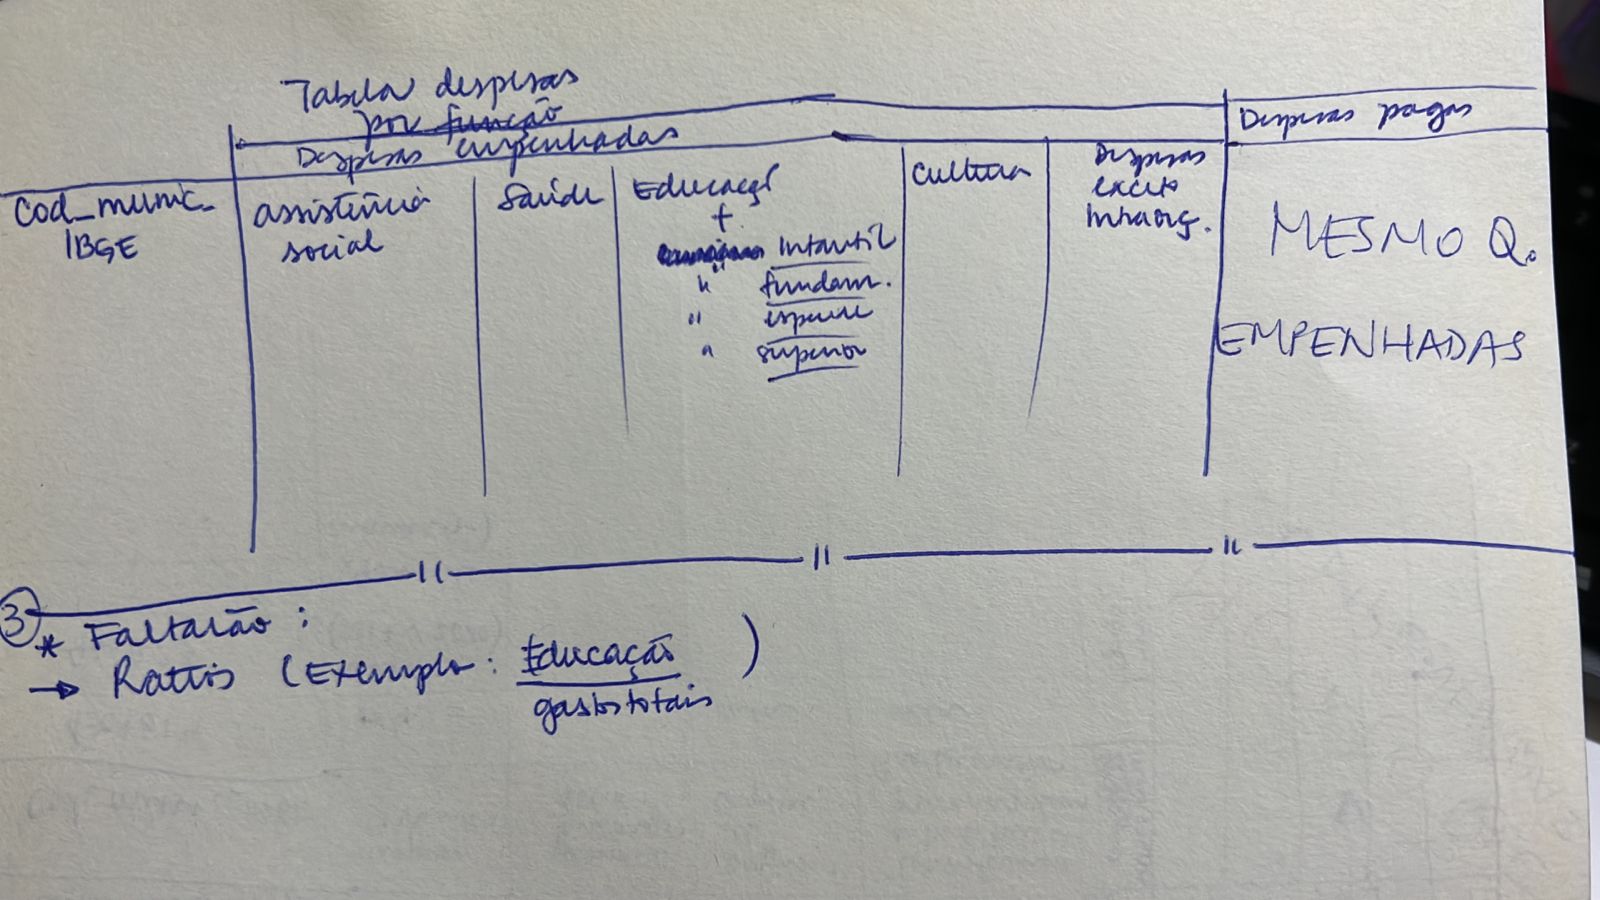 Tabela despesas
por função
Despesas empenhadas
Despesas pagas
Cod_munic_
IBGE
assistência
social
Saúde
Educaçã
+
Infantil
" fundam.
" especial
" superior
Cultura
Despesas
exceto
intraorç.
MESMO Q.
EMPENHADAS
3
* Faltarão:
→ Ratios (Exemplo: Educação
gastos totais)